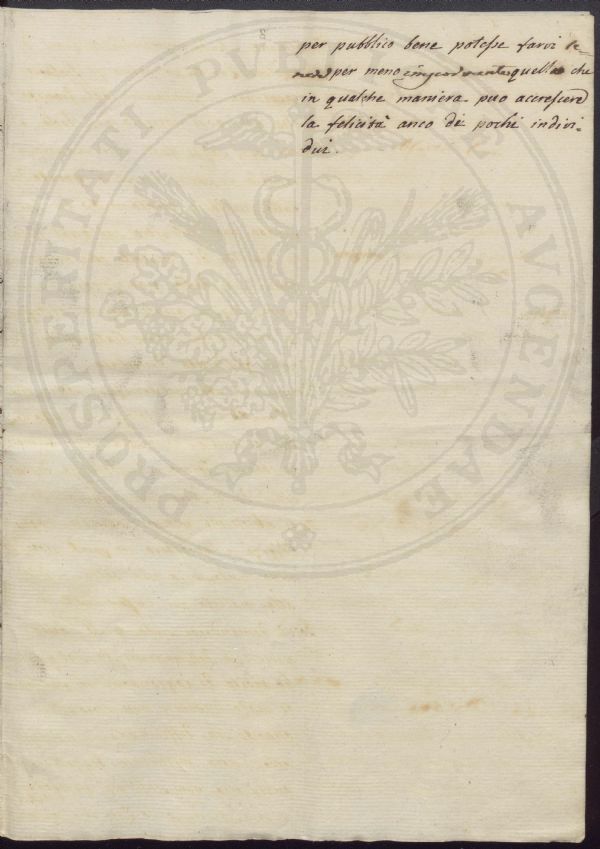 per pubblico bene potesse farvi te-
nere per meno importante quello che
in qualche maniera puo accrescere
la felicità anco di pochi indivi-
dui.
PROSPERITATI PUBLICAE AVGENDAE